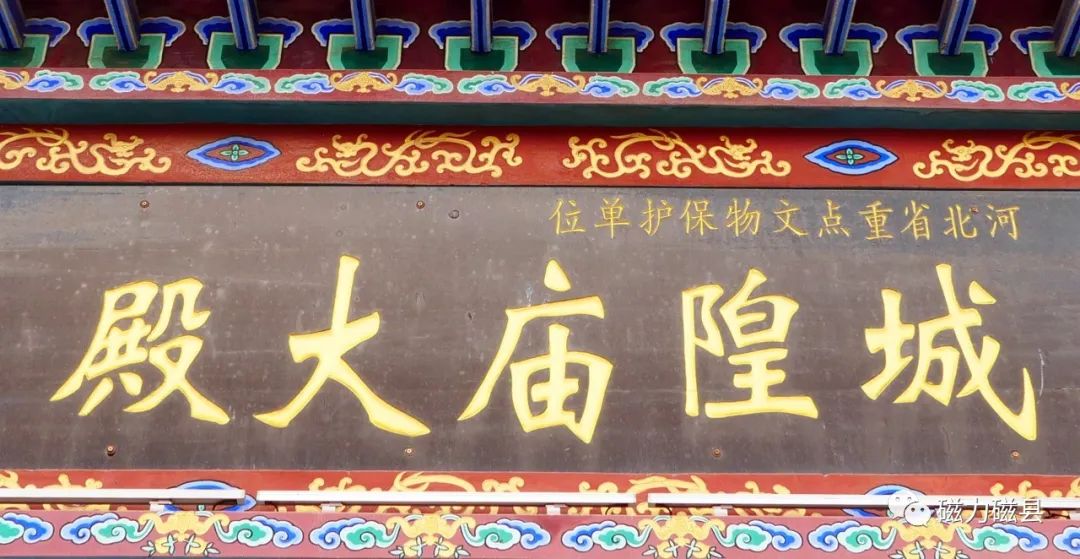 河北省重点文物保护单位
城隍庙大殿
磁力磁县